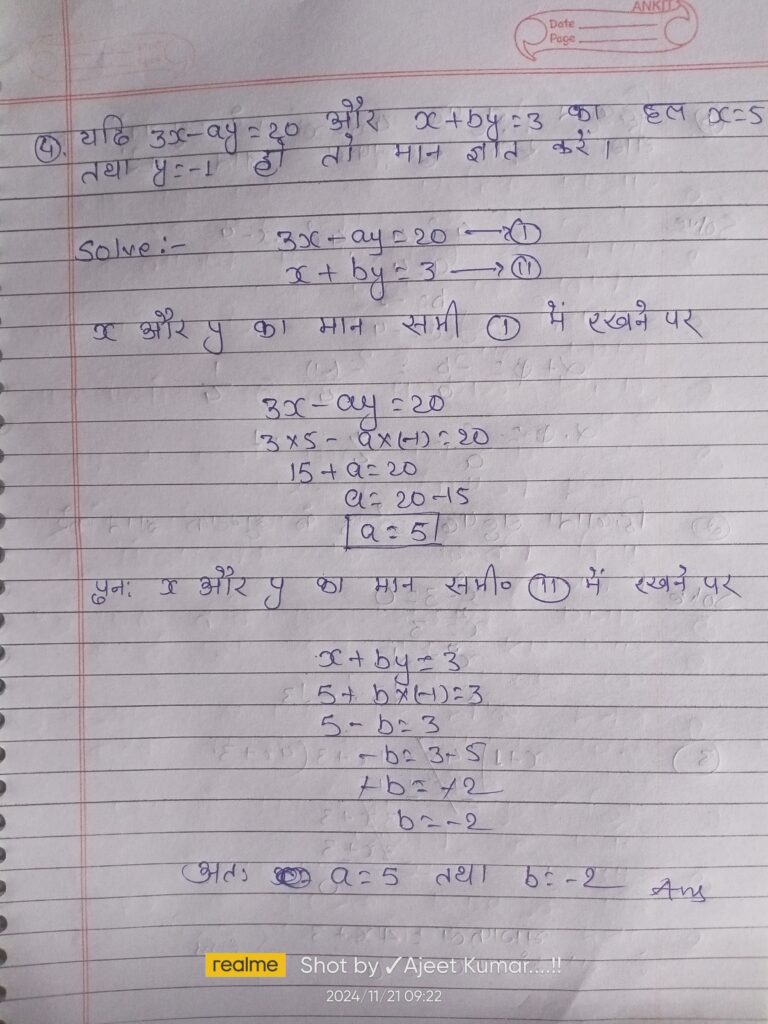 ANKIT
Date
Page
④. यदि 3x-ay=20 और x+by=3 का हल x=5
तथा y=-1 हो तो मान ज्ञात करें।
Solve:- 3x-ay=20 →①
x+by=3 →⑪
x और y का मान समी ① में रखने पर
3x-ay=20
3×5-a×(-1)=20
15+a=20
a=20-15
a=5
पुनः x और y का मान समी० ⑪ में रखने पर
x+by=3
5+b×(-1)=3
5-b=3
-b=3-5
+b=+2
b=-2
अतः a=5 तथा b=-2 Ans
realme Shot by ✓Ajeet Kumar....!!
2024/11/21 09:22